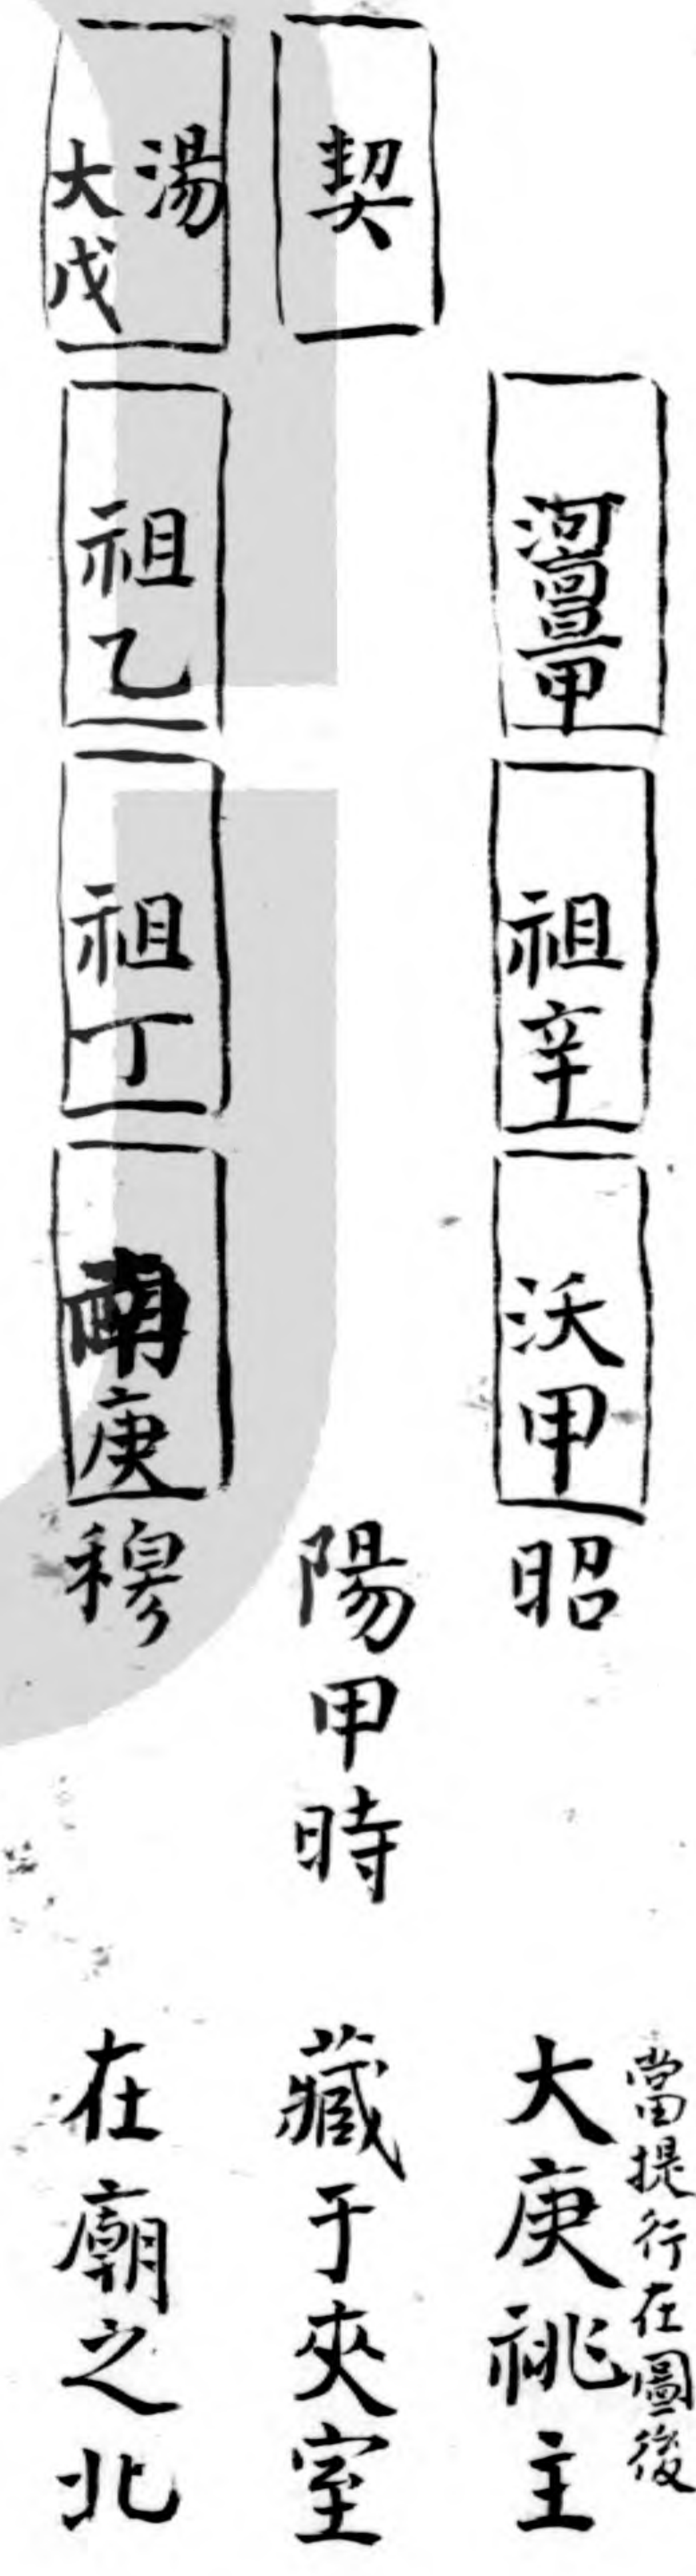 當提行在圖後
河亶甲
祖辛
沃甲
昭
大庚祧主
契
陽甲時
藏于夾室
湯
大戊
祖乙
祖丁
南庚
穆
在廟之北